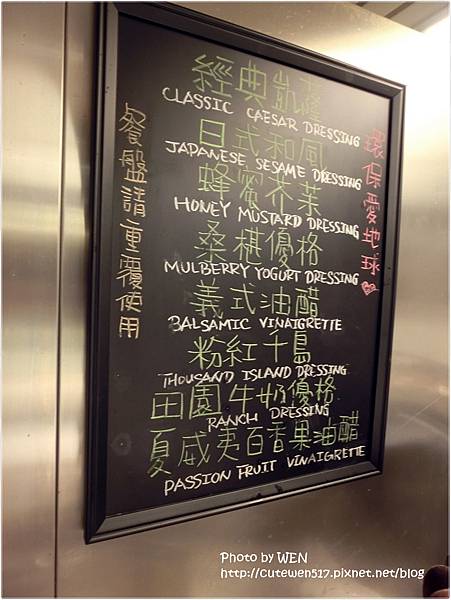 經典凱薩
CLASSIC CAESAR DRESSING
日式和風
JAPANESE SESAME DRESSING
蜂蜜芥茉
HONEY MUSTARD DRESSING
桑椹優格
MULBERRY YOGURT DRESSING
義式油醋
BALSAMIC VINAIGRETTE
粉紅千島
THOUSAND ISLAND DRESSING
田園牛奶優格
RANCH DRESSING
夏威夷百香果油醋
PASSION FRUIT VINAIGRETTE
餐盤請重覆使用
環保愛地球
Photo by WEN
http://cutewen517.pixnet.net/blog